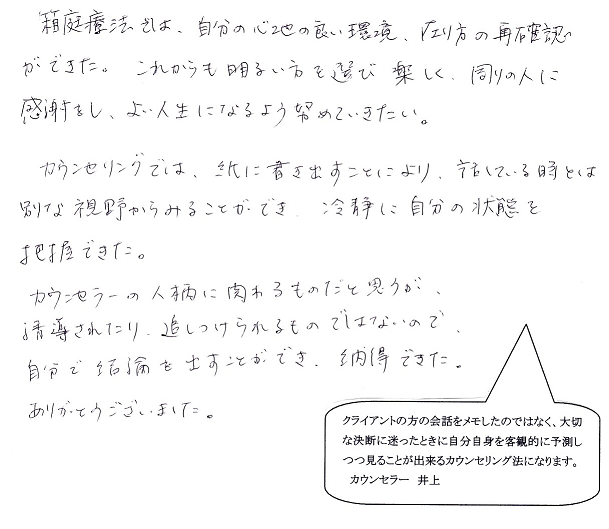 箱庭療法では、自分の心地の良い環境、在り方の再確認
ができた。これからも明るい方を選び楽しく、周りの人に
感謝をし、よい人生になるよう努めていきたい。
カウンセリングでは、紙に書き出すことにより、話している時とは
別な視野からみることができ、冷静に自分の状態を
把握できた。
カウンセラーの人柄に関わるものだと思うが、
誘導されたり、追しつけられるものではないので、
自分で結論を出すことができ、納得できた。
ありがとうございました。
クライアントの方の会話をメモしたのではなく、大切
な決断に迷ったときに自分自身を客観的に予測し
つつ見ることが出来るカウンセリング法になります。
カウンセラー 井上